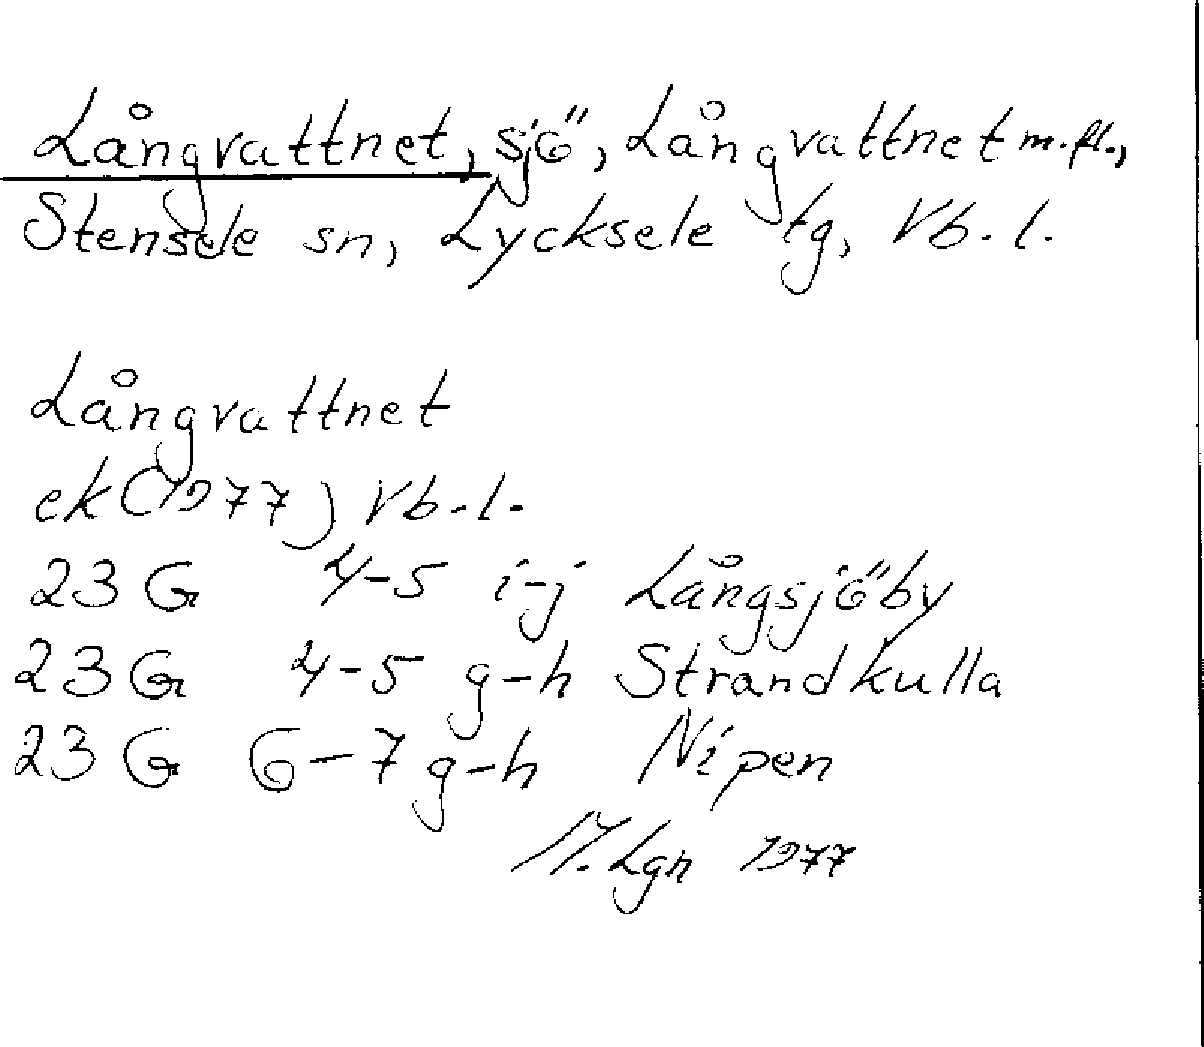 Långvattnet, sjö, Långvattnet m.fl.,
Stensele sn, Lycksele tg, Vb.l.
Långvattnet
ek (1977) Vb.l.
23 G 4-5 i-j Långsjöby
23 G 4-5 g-h Strandkulla
23 G 6-7 g-h Nipen
M. Lgn 1977